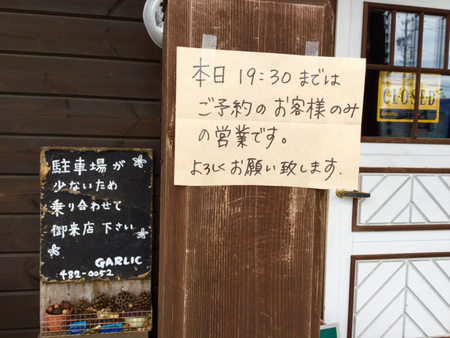 本日 19:30 までは
ご予約の お客様のみ
の営業です。
よろしくお願い致します.
CLOSED
駐車場が
少ないため
乗り合わせて
御来店 下さい
GARLIC
482-0052